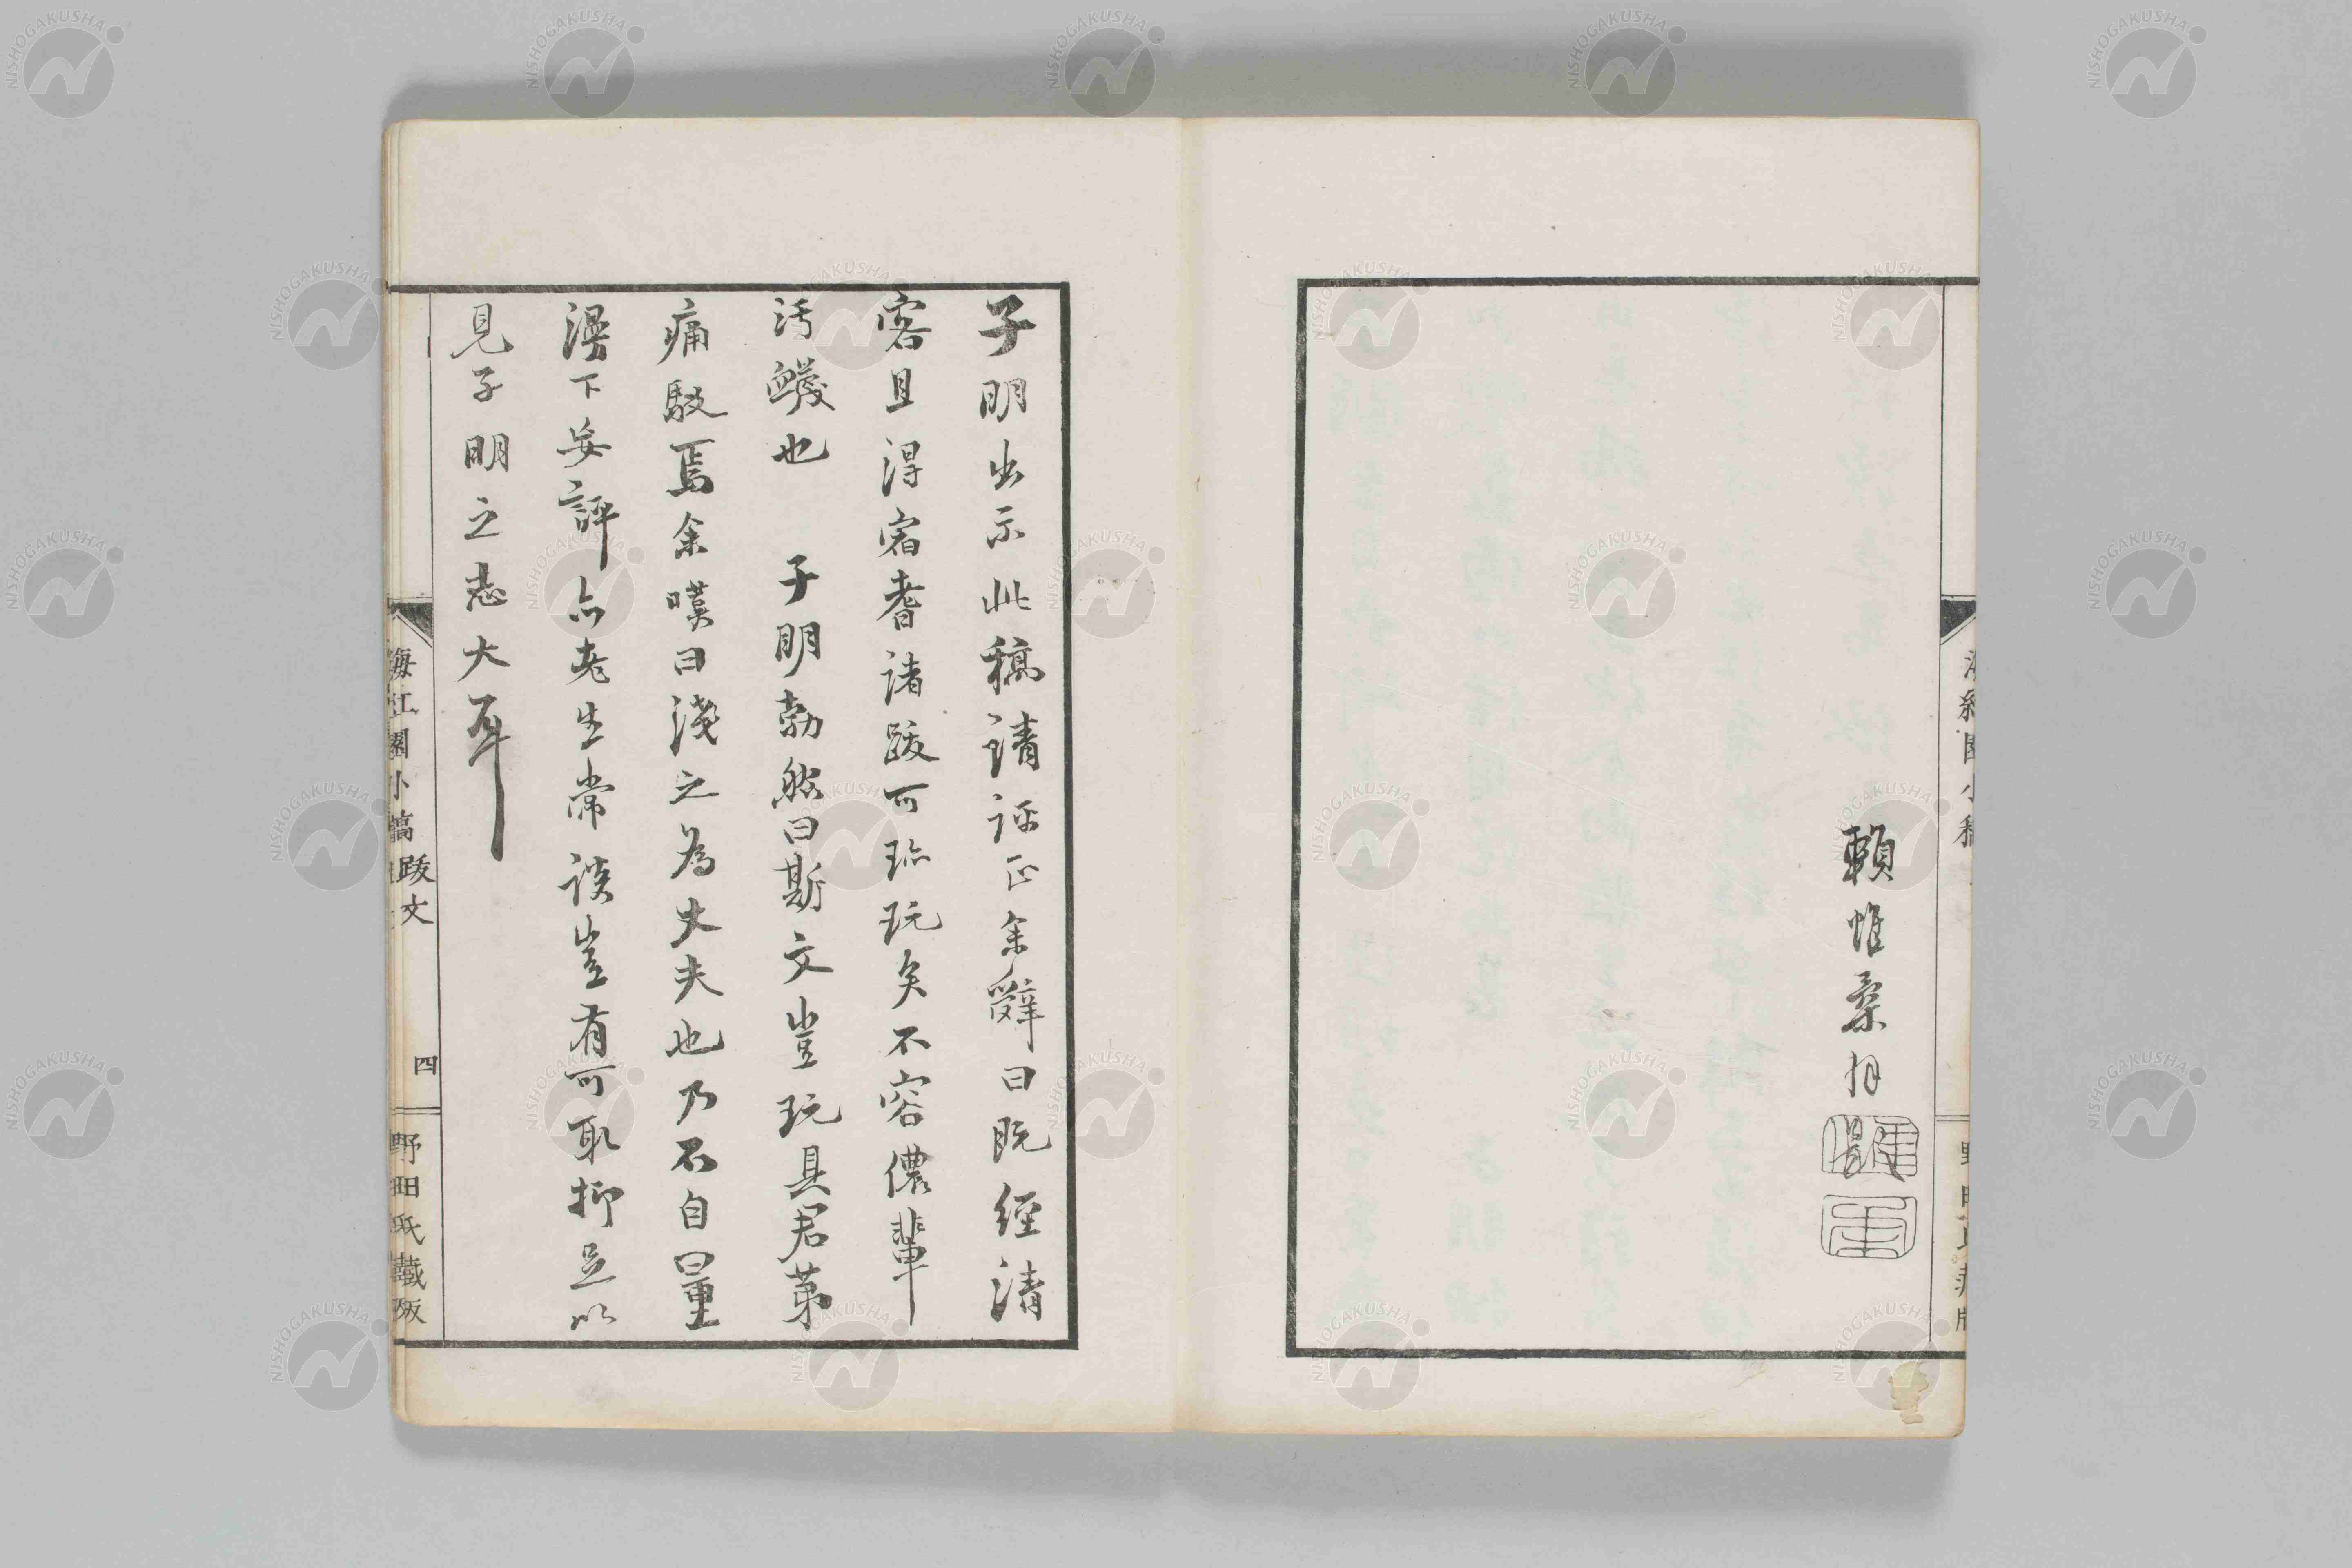 賴惟柔拜
子明出示此稿請評正余辭曰既經清
客且得宿耆諸跋可珍玩矣不容儂輩
汚衊也　子明勃然曰斯文豈玩具君第
痛駁焉余嘆曰淺之為丈夫也乃不自量
漫下妄評亦老生常談豈有可取抑足以
見子明之志大耳
海紅園小稿
跋文
四
野田氏藏版